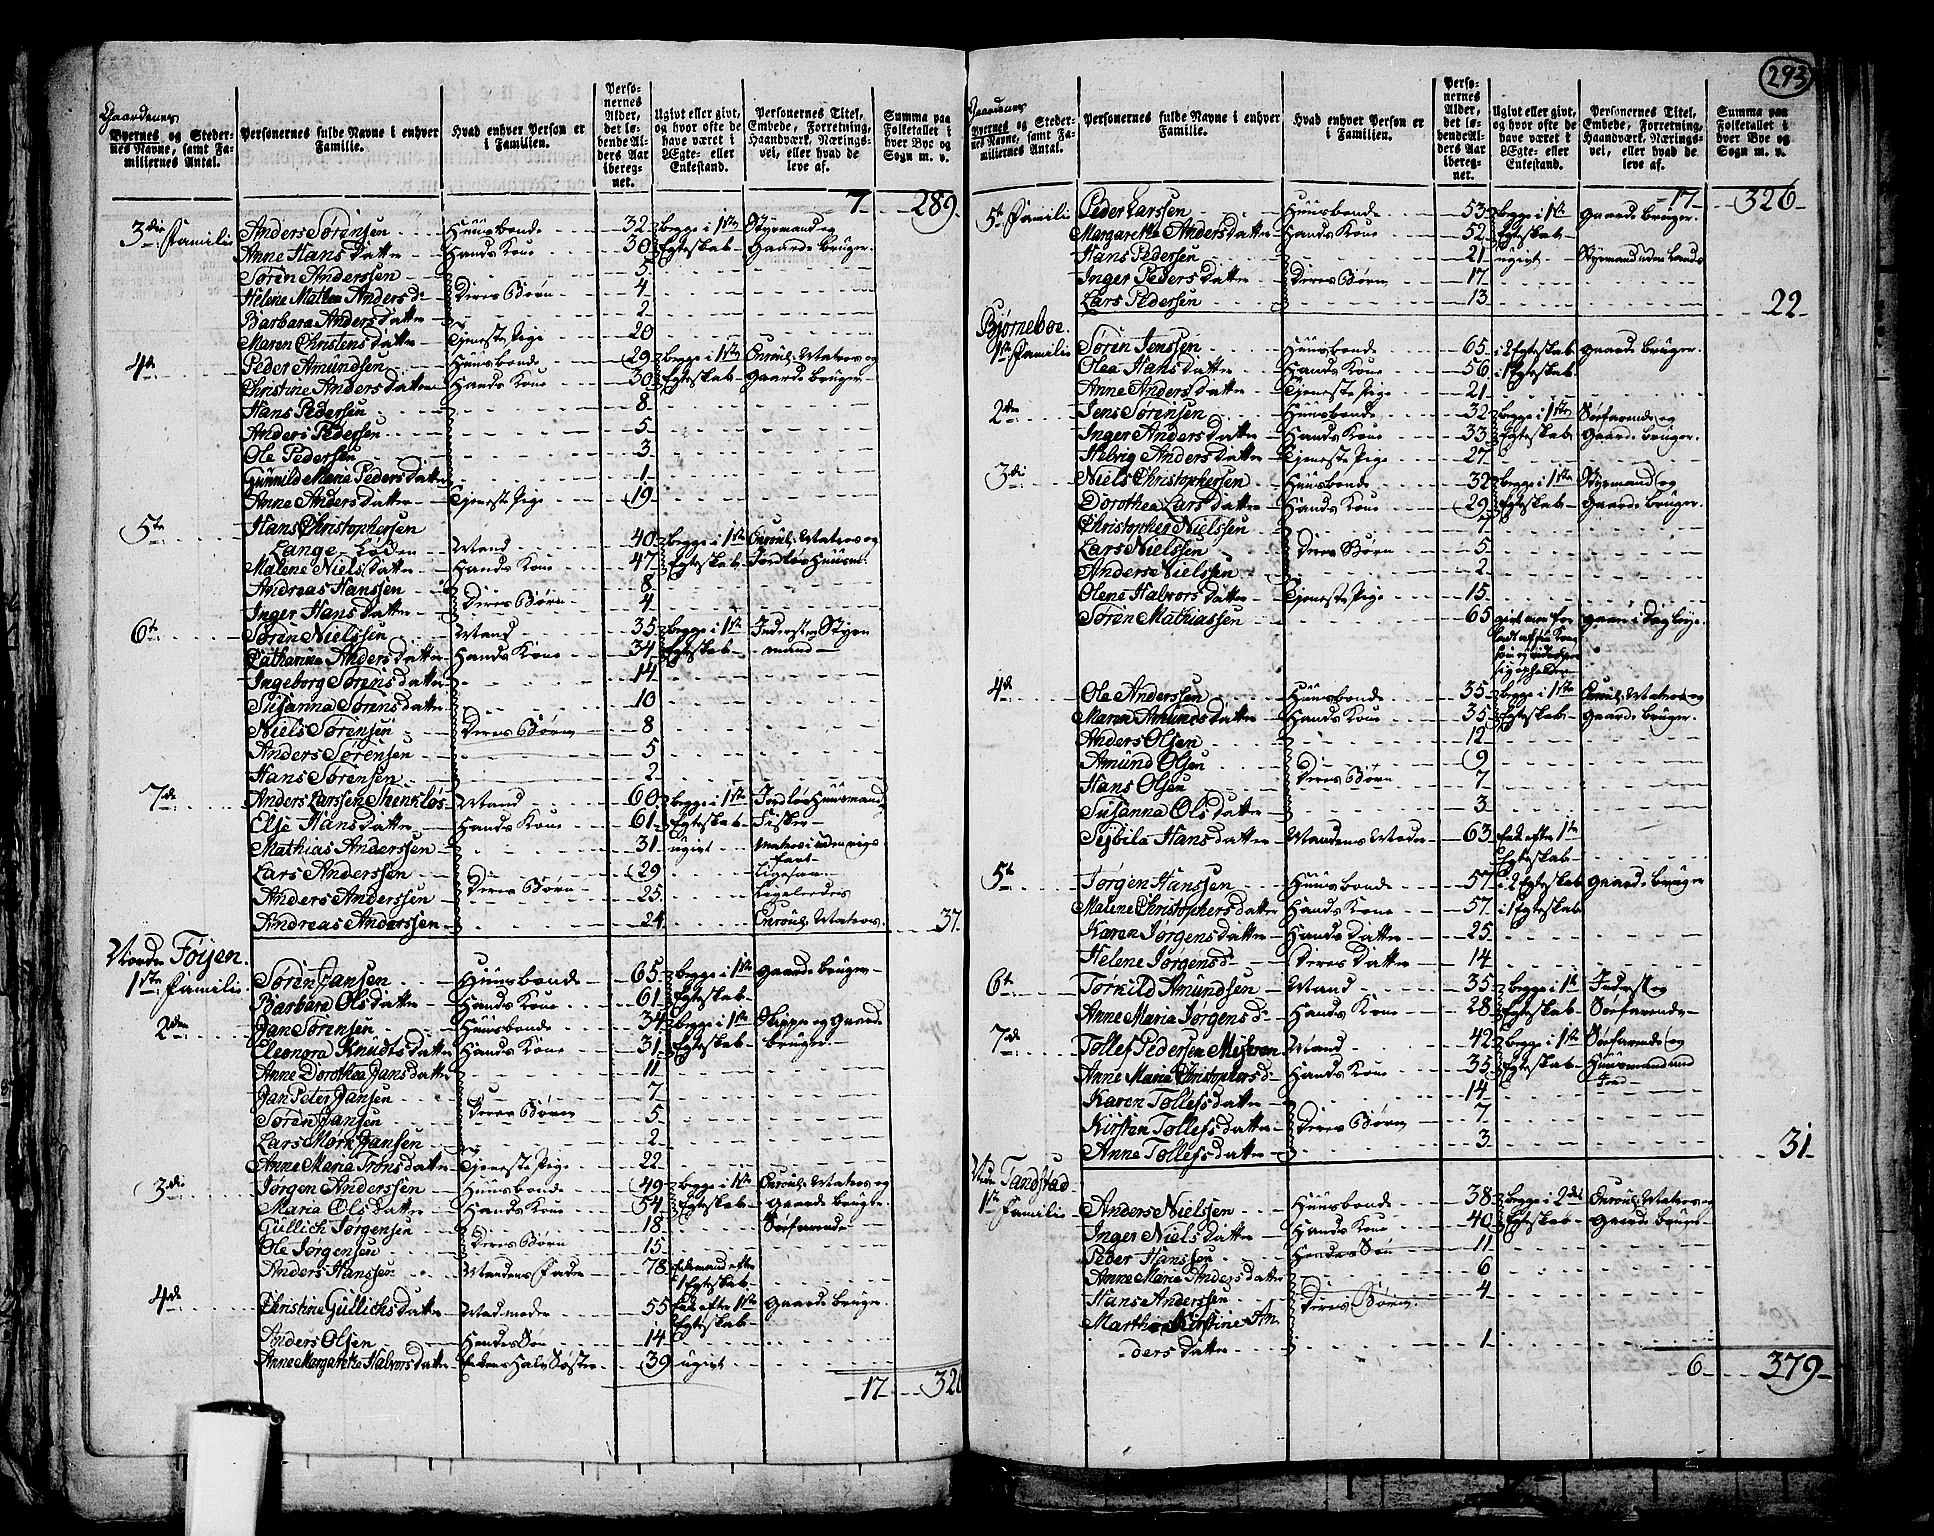 293
Gaardenes
Byernes og Stedernes Navne, samt Familiernes Antal.
Personernes fulde Navne i enhver Familie.
Hvad enhver Person er i Familien.
Personernes Alder, det løbende Alders Aar iberegnet.
Ugivt eller givt, og hvor ofte de have været i Ægte- eller Enkestand.
Personernes Titel, Embede, Forretning, Haandværk, Næringsvei, eller hvad de leve af.
Summa paa Folketallet i hver Bye og Sogn m. v.
7 289
3die Familie Anders Sørensen Huusbonde 32 begge i 1ste Styrmand og
Anne Hans datter Hands Kone 30 Egteskab Gaarde bruger
Søren Anderssen 5
Helene Mathea Anders d. Deres Børn 4
Barbara Anders datter 2
Maren Christens datter Tjeneste Pige 20
4de Peder Amundsen Huusbonde 29 begge i 1ste Enroul. Matros og
Christine Anders datter Hands Kone 30 Egteskab Gaarde bruger
Hans Pedersen 8
Anders Pedersen 5
Ole Pedersen 3
Gunnild Maria Peders datter 1
Anne Anders datter Tjeneste Pige 19
5te Hans Christophersen
Lange Løden Mand 40 begge i 1ste Enroul. Matros og
Malene Niels datter Hands Kone 47 Egteskab Jordløs Huusm.
Andreas Hanssen 8
Inger Hans datter Deres Børn 4
6te Søren Nielssen Mand 35 begge i 1ste Inderst og Styr
Catharina Anders datter Hands Kone 34 Egteskab mand
Ingeborg Sørens datter 14
Susanna Sørens datter 10
Niels Sørensen Deres Børn 8
Anders Sørensen 5
Hans Sørensen 2
7de Anders Larssen Skenkløs Mand 60 begge i 1ste Jordløs Huusmand
Else Hans datter Hands Kone 61 Egteskab Fisker
Mathias Anderssen 31 ugivt Matros i udenrigs
fart
Lars Anderssen 29 Ligesaa
Anders Anderssen Deres Børn 25 Ligeledes
Andreas Anderssen 24 Enroul. Matros 37
Nordre Føyen
1ste Familie Søren Jansen Huusbonde 65 begge i 1ste Gaarde bruger
Barbara Ols datter Hands Kone 61 Egteskab
2den Jan Sørensen Huusbonde 34 begge i 1ste Skipper og Gaarde
Eleonora Knudts datter Hands Kone 31 Egteskab bruger
Anne Dorothea Jans datter 11
Jan Peter Jansen 7
Søren Jansen Deres Børn 5
Lars Mørk Jansen 2
Anne Maria Trons datter Tjeneste Pige 22
3die Jørgen Anderssen Huusbonde 49 begge i 1ste Enroul. Matros og
Maria Ols datter Hands Kone 54 Egteskab Gaarde bruger
Gullich Jørgensen 18 Søefarende
Ole Jørgensen Deres Børn 15
Anders Hanssen Mandens Fader 78 Enkemand efter
1 Egteskab
4de Christine Gullichs datter Madmoder 55 Enke efter 1ste Gaarde bruger
Egteskab
Anders Olsen Hendes Søn 14
Anne Margaretha Halvors datter Enkens Halv Søster 39 ugivt
17 326
Gaardenes
Byernes og Stedernes Navne, samt Familiernes Antal.
Personernes fulde Navne i enhver Familie.
Hvad enhver Person er i Familien.
Personernes Alder, det løbende Alders Aar iberegnet.
Ugivt eller givt, og hvor ofte de have været i Ægte- eller Enkestand.
Personernes Titel, Embede, Forretning, Haandværk, Næringsvei, eller hvad de leve af.
Summa paa Folketallet i hver Bye og Sogn m. v.
17 326
5te Familie Peder Larssen Huusbonde 53 begge i 1ste Gaarde bruger
Margaretha Anders datter Hands Kone 52 Egteskab
Hans Pedersen 21 ugivt Styrmand uden Lands
Inger Peders datter Deres Børn 17
Lars Pedersen 13 22
Bjørneboe
1ste Familie Søren Jenssen Huusbonde 65 i 2 Egteskab Gaarde bruger
Olea Hans datter Hands Kone 56 i 1 Egteskab
Anne Anders datter Tjeneste Pige 21
2den Jens Sørensen Huusbonde 32 begge i 1ste Søefarende og
Inger Anders datter Hands Kone 33 Egteskab Gaarde bruger
Helvig Anders datter Tjeneste Pige 27
3die Niels Christophersen Huusbonde 32 begge i 1ste Styrmand og
Dorothea Lars datter Hands Kone 29 Egteskab Gaarde bruger
Christopher Nielssen 7
Lars Nielssen Deres Børn 5
Anders Nielssen 2
Olene Halvors datter Tjeneste Pige 15
Søren Mathiassen 65 gaaer i Dag leye
4de Ole Anderssen Huusbonde 35 begge i 1ste Enroul. Matros og
Maren Amunds datter Hands Kone 35 Egteskab Gaarde bruger
Anders Olsen 12
Amund Olsen 9
Hans Olsen Deres Børn 7
Susanna Ols datter 3
Sejbila Hans datter Mandens Moder 63 Enke efter 1ste
Egteskab
5te Jørgen Hanssen Huusbonde 57 i 2 Egteskab Gaarde bruger
Malene Christophers datter Hands Kone 57 i 1 Egteskab
Karen Jørgens datter Hands Datter 25
Helene Jørgens d. Deres Datter 14
6te Tørkild Amundsen Mand 35 begge i 1ste Inderst og
Anne Maria Jørgens d. Hands Kone 28 Egteskab Søefarende
7de Tollef Pedersen Misevæn Mand 42 begge i 1ste Søefarende og
Anne Maria Christophers d. Hands Kone 35 Egteskab Huusmand med
Jord
Karen Tollefs datter 14
Kirsten Tollefs datter Deres Børn 7
Anne Tollefs datter 3 31
Nedre Tandstad
1ste Familie Anders Nielssen Huusbonde 38 begge i 2det Enroul. Matros og
Inger Niels datter Hands Kone 40 Egteskab Gaarde bruger
Peder Hanssen Hendes Søn 11
Anne Maria Anders datter 6
Hans Anderssen Deres Børn 4
Martha Kirstine An
ders datter 1
6 379